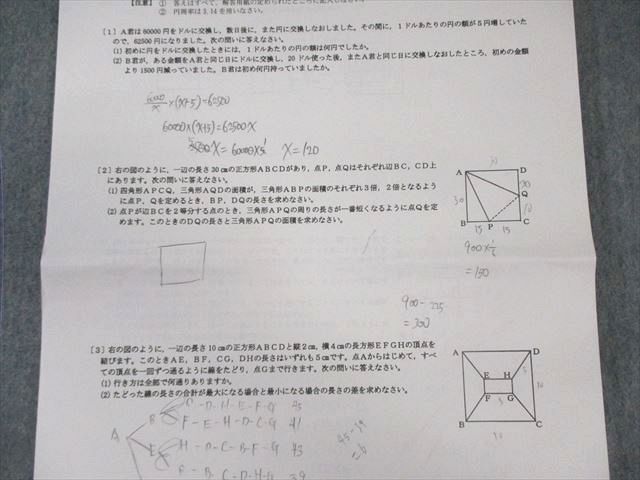 【注意】 ① 答えはすべて、解答用紙の定められたところに記入しなさい。
② 円周率は3.14を用いなさい。
[1] A君は60000円をドルに交換し、数日後に、また円に交換しなおしました。その間に、1ドルあたりの円の額が5円増していた
ので、62500円になりました。次の問いに答えなさい。
(1) 初めに円をドルに交換したときには、1ドルあたりの円の額は何円でしたか。
(2) B君が、ある金額をA君と同じ日にドルに交換し、20ドル使った後、またA君と同じ日に交換しなおしたところ、初めの金額
より1500円減っていました。B君は初め何円持っていましたか。
6000/x ×(x+5)=62500
60000×(x+5)=62500x
x=120
[2] 右の図のように、一辺の長さ30cmの正方形ABCDがあり、点P、点Qはそれぞれ辺BC、CD上
にあります。次の問いに答えなさい。
(1) 四角形APCQ、三角形AQDの面積が、三角形ABPの面積のそれぞれ3倍、2倍となるよう
に点P、Qを定めるとき、BP、DQの長さを求めなさい。
(2) 点Pが辺BCを2等分する点のとき、三角形APQの周りの長さが一番短くなるように点Qを定
めます。このときのDQの長さと三角形APQの面積を求めなさい。
A D
30
Q
B P C
15 15
900×1/6
=150
900-225
=300
[3] 右の図のように、一辺の長さ10cmの正方形ABCDと縦2cm、横4cmの長方形EFGHの頂点を
結びます。このときAE、BF、CG、DHの長さはいずれも5cmです。点Aからはじめて、すべ
ての頂点を一回ずつ通るように線をたどり、点Gまで行きます。次の問いに答えなさい。
(1) 行き方は全部で何通りありますか。
(2) たどった線の長さの合計が最大になる場合と最小になる場合の長さの差を求めなさい。
A D
E H
F G
B C
10
C-D-H-E-F-G 45
B
F-E-H-D-C-G 41
A
E H-D-C-B-F-G 43
F-B-C-D-H-G 39
45-39
=6